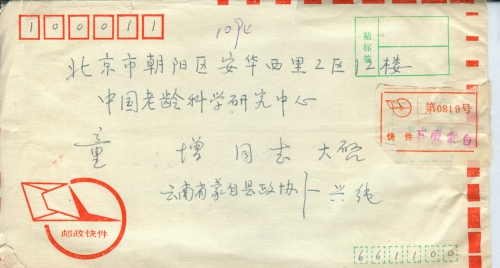 100011
贴标签
北京市朝阳区安华西里2区12楼
中国老龄科学研究中心
第0819号
快件 云南蒙自
童 增 同志 大启
云南省蒙自县政协卜兴纯
邮政快件
661100